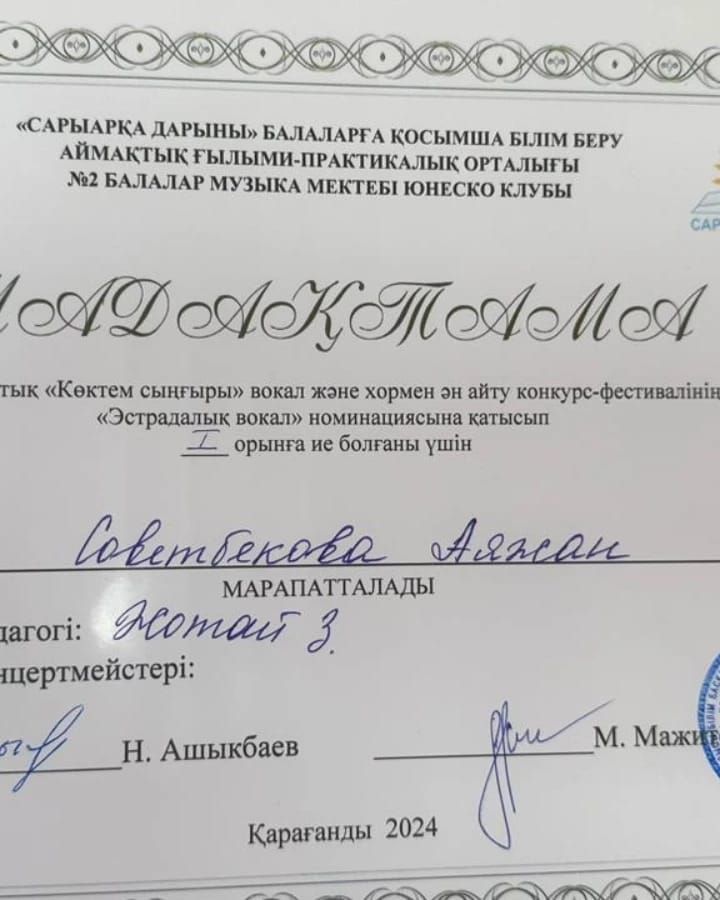 «САРЫАРҚА ДАРЫНЫ» БАЛАЛАРҒА ҚОСЫМША БІЛІМ БЕРУ
АЙМАҚТЫҚ ҒЫЛЫМИ-ПРАКТИКАЛЫҚ ОРТАЛЫҒЫ
№2 БАЛАЛАР МУЗЫКА МЕКТЕБІ ЮНЕСКО КЛУБЫ
САР
МАДАҚТАМА
тық «Көктем сыңғыры» вокал және хормен ән айту конкурс-фестивалінің
«Эстрадалық вокал» номинациясына қатысып
I орынға ие болғаны үшін
Советбекова Аяжан
МАРАПАТТАЛАДЫ
дагогі: Жотай З.
нцертмейстері:
Н. Ашыкбаев
М. Мажит
Қарағанды 2024